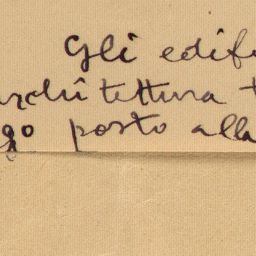 Gli edif
architettura t
go posto alla